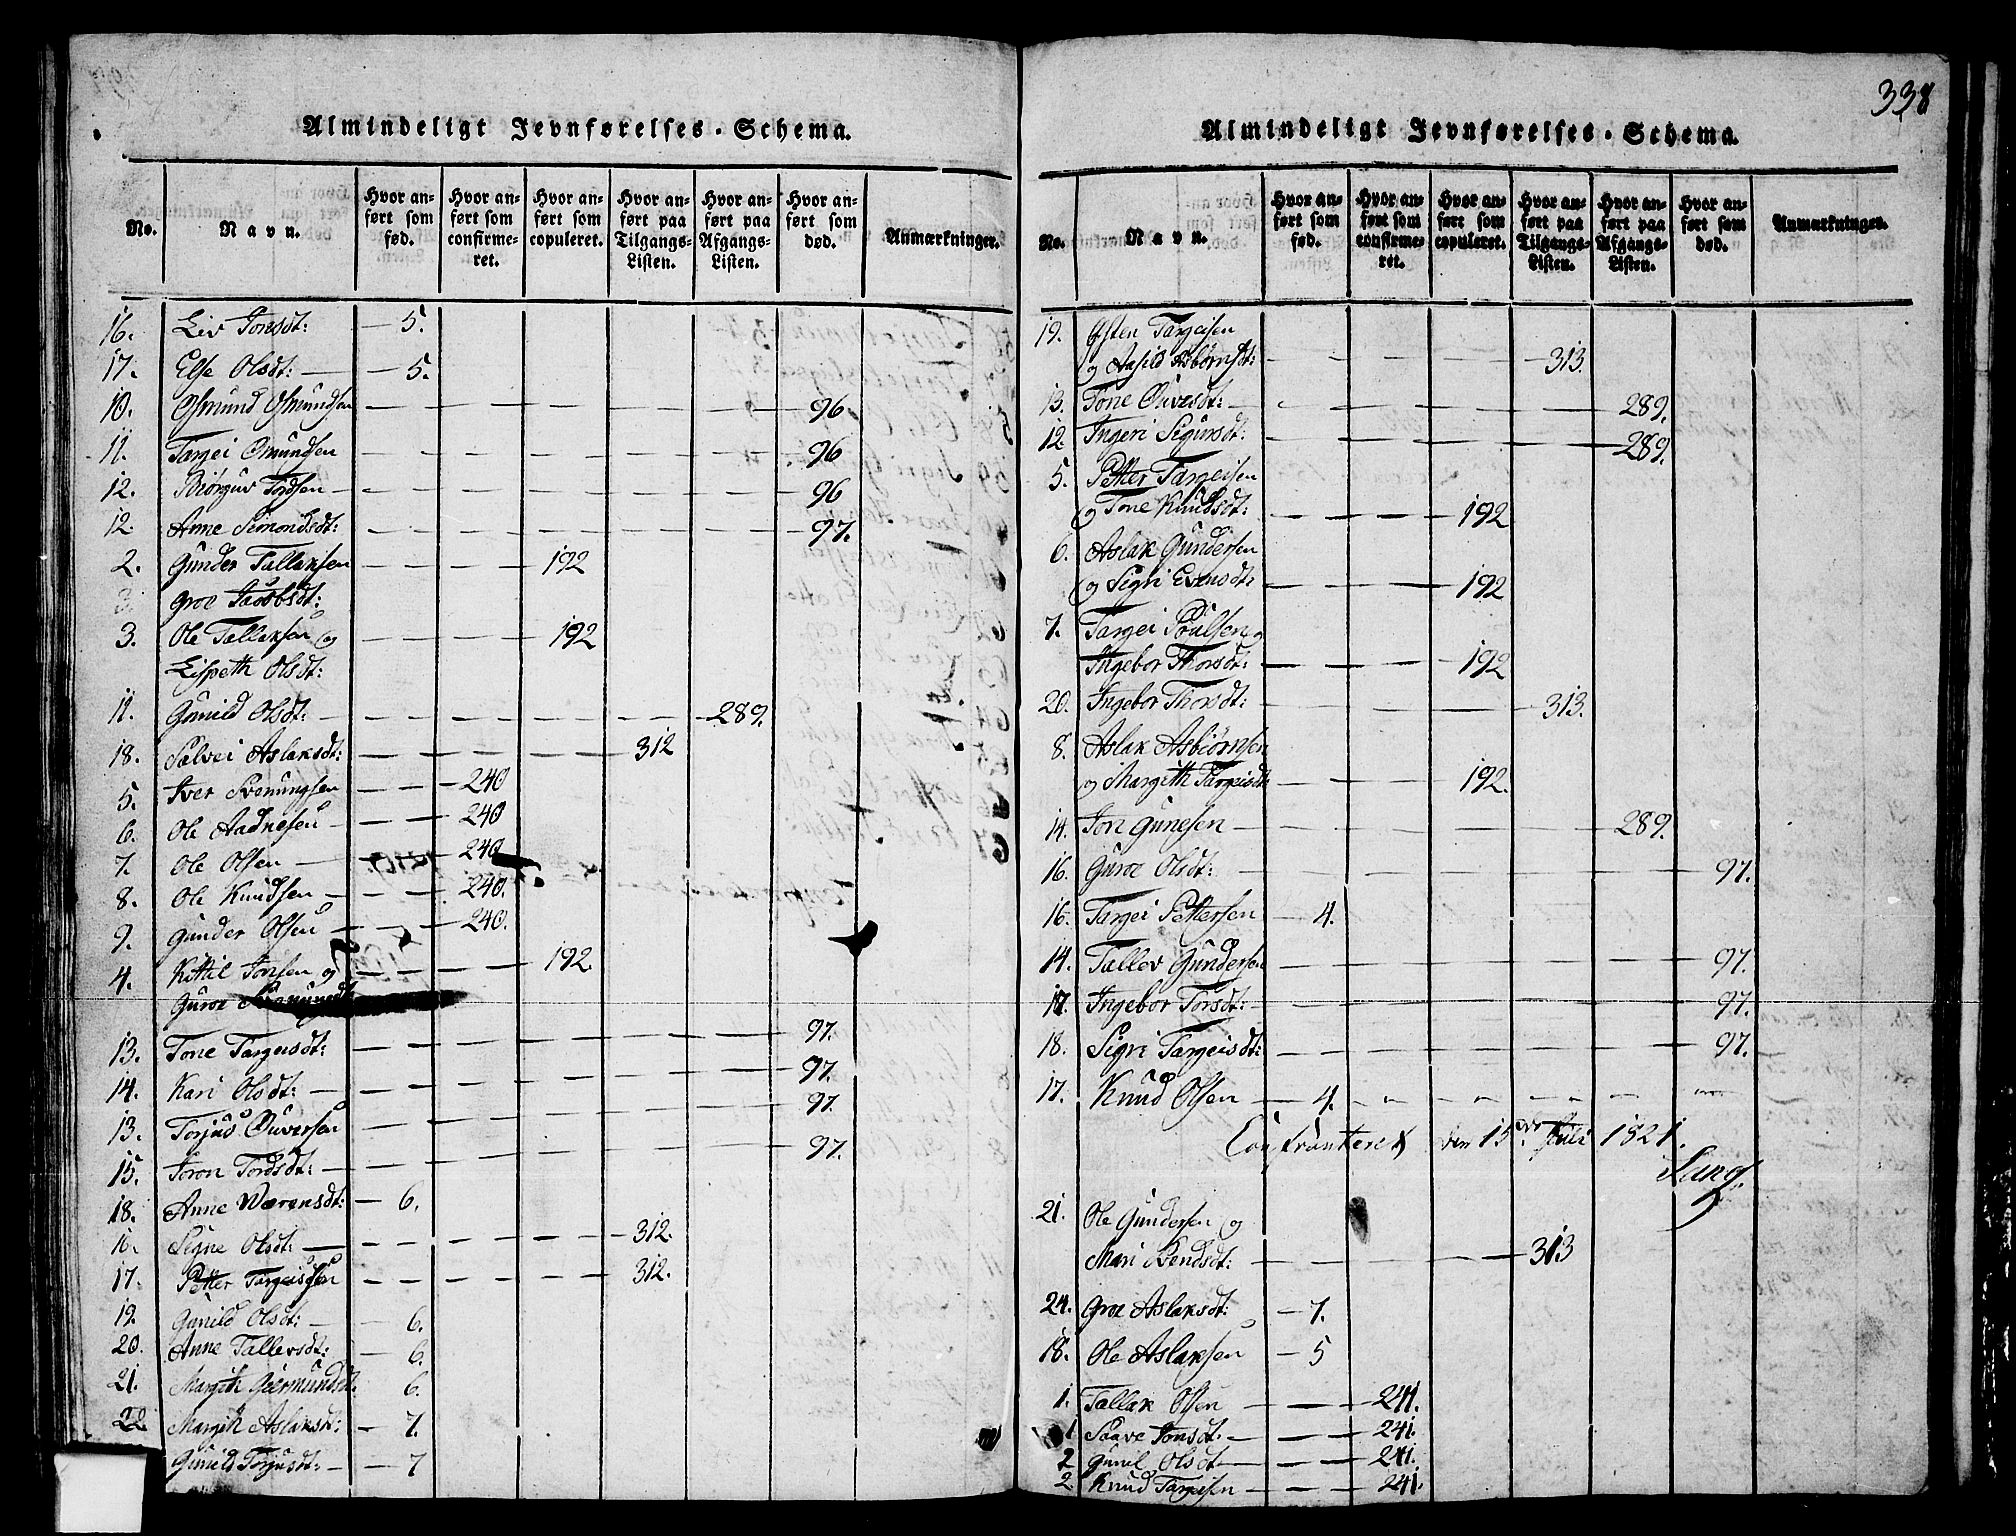 338
Almindeligt Jevnførelses-Schema.
No. Navn. Hvor anført som fød. Hvor anført som confirmeret. Hvor anført som copuleret. Hvor anført paa Tilgangs-Listen. Hvor anført paa Afgangs-Listen. Hvor anført som død. Anmærkninger.
16. Liv Jonsdt: — 5.
17. Else Olsdt: — 5.
10. Osmund Osmundsen — — — — — 96
11. Targei Osmundsen — — — — — 96
12. Biørguv Tordsen — — — — — 96
12 Anne Simondsdt: — — — — — 97.
2. Gunder Tallaksen — — 192
Groe Jacobsdt:
3. Ole Tallaksen og — — — 192
Lispeth Olsdt:
11. Gunild Olsdt: — — — — — 289.
18. Sælvei Aslaksdt: — — — 312
5. Iver Svenungsen — — 240
6. Ole Aadnesen — — 240
7. Ole Olsen — — 240
8. Ole Knudsen — — 240.
9. Gunder Olsen — — 240.
4. Kittil Jonsen og — — — 192.
Guroe
13. Tone Targeisdt: — — — — — 97.
14. Kari Olsdt: — — — — — 97.
13. Torjus Ouversen — — — — — 97.
15. Joron Tordsdt: — — — — — 97.
18. Anne Værensdt: — 6.
16. Signe Olsdt: — — — — 312.
17. Petter Targeisen — — — 312.
19. Gunild Olsdt: — 6.
20. Anne Tallevsdt: — 6.
21. Margith Geermundsdt: 6.
22. Margith Aslaksdt: — 7.
Gunild Torjusdt: — 7
Almindeligt Jevnførelses-Schema.
No. Navn. Hvor anført som fød. Hvor anført som confirmeret. Hvor anført som copuleret. Hvor anført paa Tilgangs-Listen. Hvor anført paa Afgangs-Listen. Hvor anført som død. Anmærkninger.
19. Østen Targeisen
og Aasild Asbiørnsdt: — — — 313.
13. Tone Ouvesdt: — — — — — 289.
12. Ingeri Sigursdt: — — — — 289.
5. Petter Targeisen
og Tone Knudsdt: — — — 192
6. Aslak Gundersen
og Sigri Evensdt: — — — 192
7. Targei Poulsen og
Ingebor Thorsdt: — — — 192
20. Ingebor Thorsdt: — — — 313.
8. Aslak Asbiørnsen
og Margith Targeisdt: — — 192.
14. Jon Gunesen — — — — — 289.
16. Guroe Olsdt: — — — — — 97.
16. Targei Pettersen — 4.
14. Tallev Gundersen — — — — — 97.
17. Ingebor Torsdt: — — — — — 97.
18. Sigri Targeisdt: — — — — — 97.
17. Knud Olsen — 4. — — — —
Confronteret den 15de Juli 1821.
Lang.
21. Ole Gundersen og
Mari Svendsdt: — — — 313
24. Groe Aslaksdt: — 7.
18. Ole Aslaksen — 5
1. Tallak Olsen — — 241.
1 Saave Jonsdt: — — 241.
2 Gunil Olsdt — — 241.
2. Knud Targeisen — — 241.